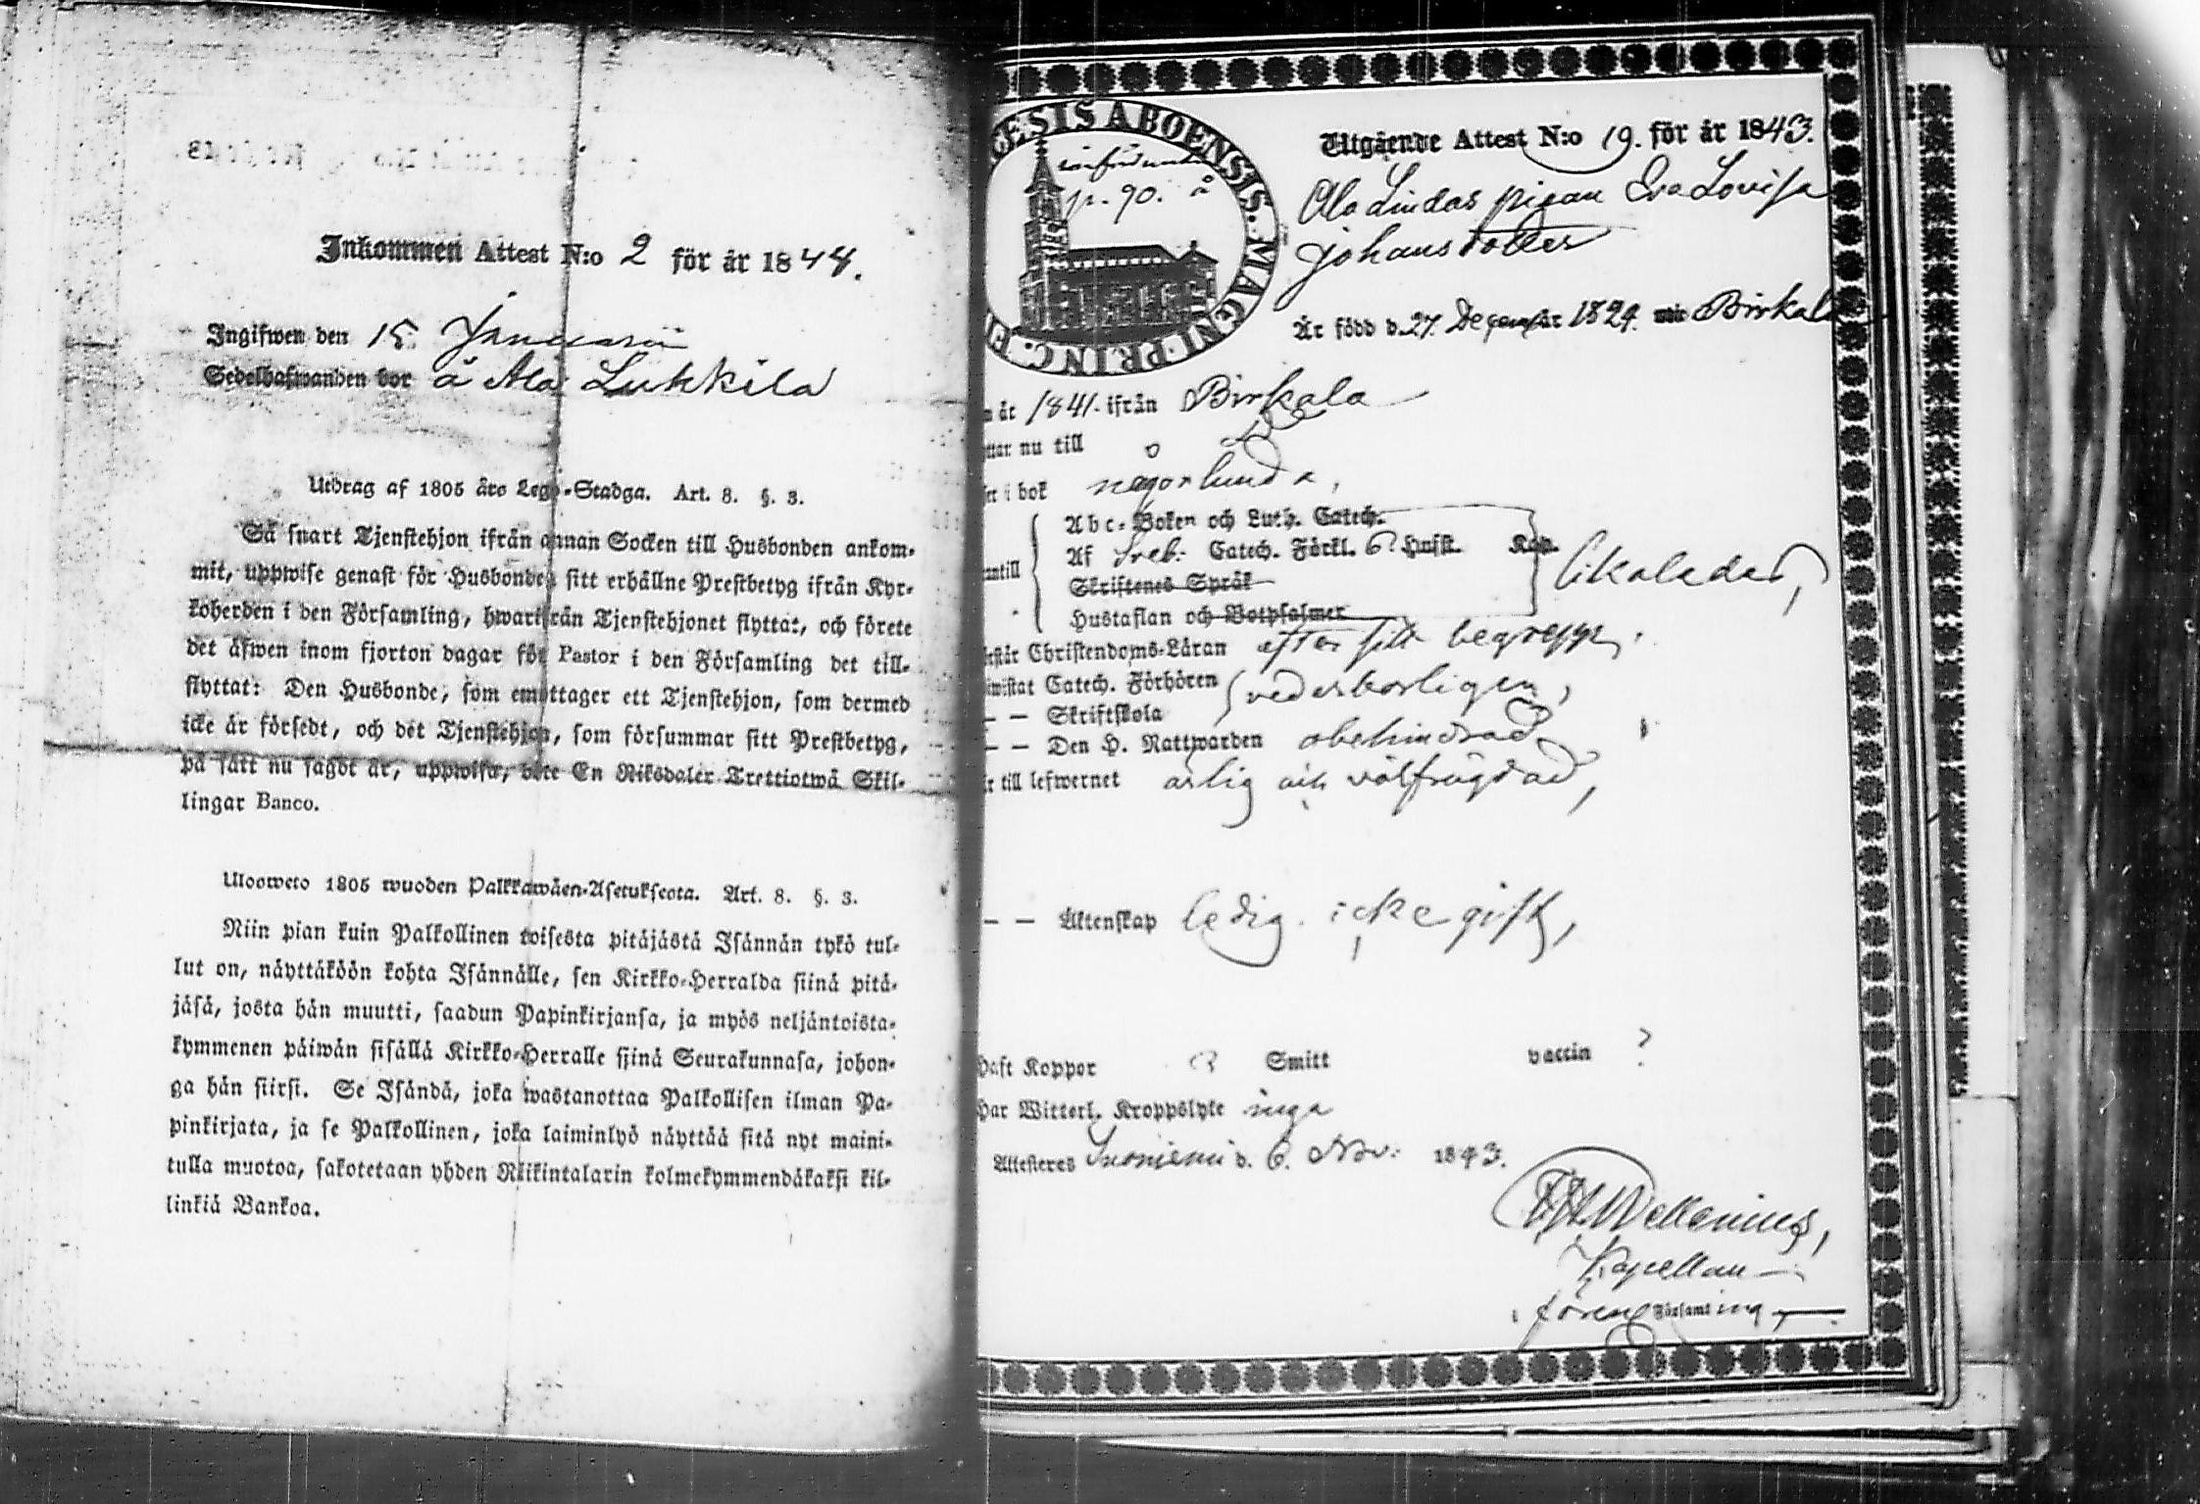 Inkommen Attest N:o 2 för år 1844.
Ingifwen den 15 Januarii
Sedelhafwanden bor å Ala Lukkila
Utdrag af 1805 års Lego-Stadga. Art. 8. §. 3.
Så snart Tjenstehjon ifrån annan Socken till Husbonden ankom-
mit, uppwise genast för Husbonden sitt erhållne Prestbetyg ifrån Kyr-
koherden i den Församling, hwarifrån Tjenstehjonet flyttat, och förete
det äfwen inom fjorton dagar för Pastor i den Församling det till-
flyttat: Den Husbonde, som emottager ett Tjenstehjon, som dermed
icke är försedt, och det Tjenstehjon, som försummar sitt Prestbetyg,
på sätt nu sagdt är, uppwisa, böte En Riksdaler Trettiotwå Skil-
lingar Banco.
Ulosweto 1805 wuoden Palkkawäen-Asetuksesta. Art. 8. §. 3.
Niin pian kuin Palkollinen toisesta pitäjästä Isännän tykö tul-
lut on, näyttäköön kohta Isännälle, sen Kirkko-Herralda siinä pitä-
jäsä, josta hän muutti, saadun Papinkirjansa, ja myös neljäntoista-
kymmenen päiwän sisällä Kirkko-Herralle siinä Seurakunnasa, johon-
ga hän siirsi. Se Isändä, joka wastanottaa Palkollisen ilman Pa-
pinkirjata, ja se Palkollinen, joka laiminlyö näyttää sitä nyt maini-
tulla muotoa, sakotetaan yhden Riikintalarin kolmekymmendäkaksi kil-
linkiä Bankoa.
ABOENSIS. MAGNI PRINC. F
p. 90. å
Utgående Attest N:o 19. för år 1843.
Ala Lindas pigan Eva Lovisa
Johansdotter
Är född d. 27. December 1824. Birkala
år 1841. ifrån Birkala
ttar nu till
i bok någorlunda,
Abc-Boken och Luth. Catech.
Af Sveb: Catech. Förkl. 6 Hufst. Kap.
antill
likaledes,
Skriftenes Språk
Hustaflan och Botpsalmer
står Christendoms-Läran efter sitt begrepp,
wistat Catech. Förhören vederborligen,
— — Skriftskola
— — Den H. Nattwarden obehindrad
r till lefwernet ärlig och välfrägdad,
— — Äktenskap ledig. icke gift,
Haft Koppor Smitt vaccin ?
Har Witterl. Kroppslyte inga
Attesteras Suoniemi d. 6. Nov: 1843.
Wallenius,
Kapellan
Församling